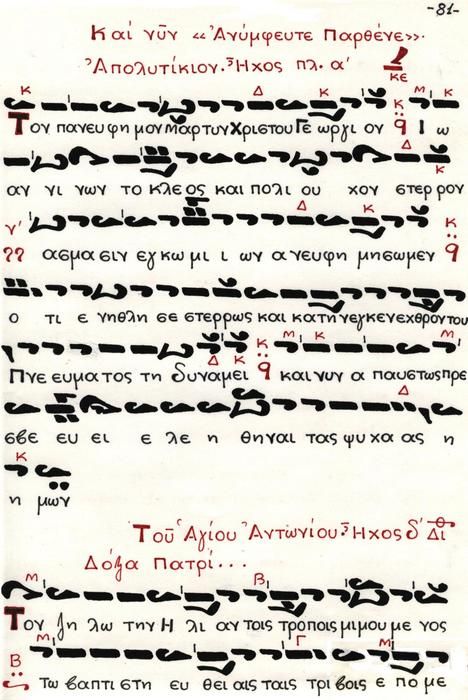 -81-
Καί νῦν «Ἀνύμφευτε Παρθένε».
Ἀπολυτίκιον. Ἦχος πλ. α΄
κε
Κ Δ Κ Μ Κ
Τον πανευ φη μον Μαρτυν Χριστου Γε ωργι ον Ι ω
Δ Κ
αν νι νων το κλε ος και πολι ου χον στερ ρον
γ' Δ Κ Κ
ασμα σιν εγκω μι ι ων α νευφη μησωμεν
ο τι ε νηθλη σε στερρως και κατηνεγκενεχθροντου
Δ Κ Μ Κ Μ
Πνε ευματος τη δυναμει και νυν α παυστωςπρε
Δ
σβε ευ ει ε λε η θηναι τας ψυ χα ας η
Κ
η μων
Τοῦ Ἁγίου Ἀντωνίου. Ἦχος δ΄ Δι
Δόξα Πατρί...
Μ Β
Τον ζη λω την Η λι αν τοις τροποις μιμου με νος
Μ Γ Μ
Β
Τω βαπτι στη ευ θει αις ταις τρι βοις ε πο με